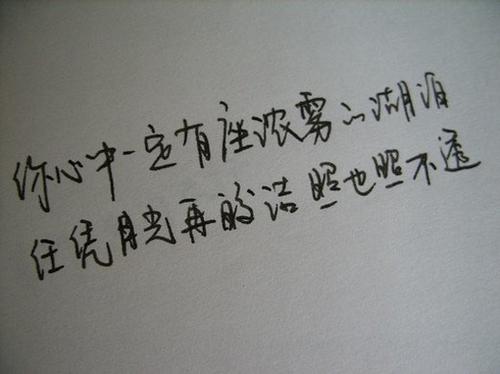 你心中一定有座浓雾的湖泊
任凭月光再皎洁照也照不透